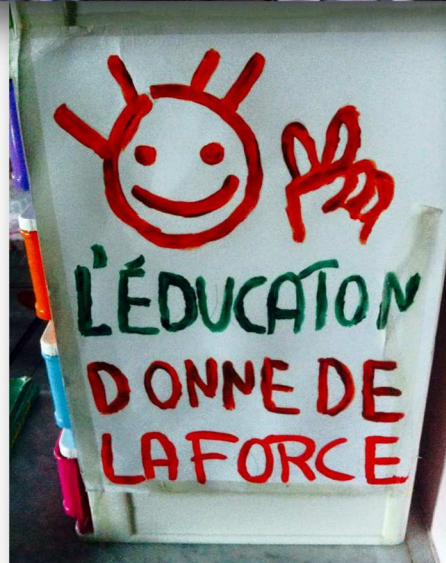 L'ÉDUCATON
DONNE DE
LA FORCE